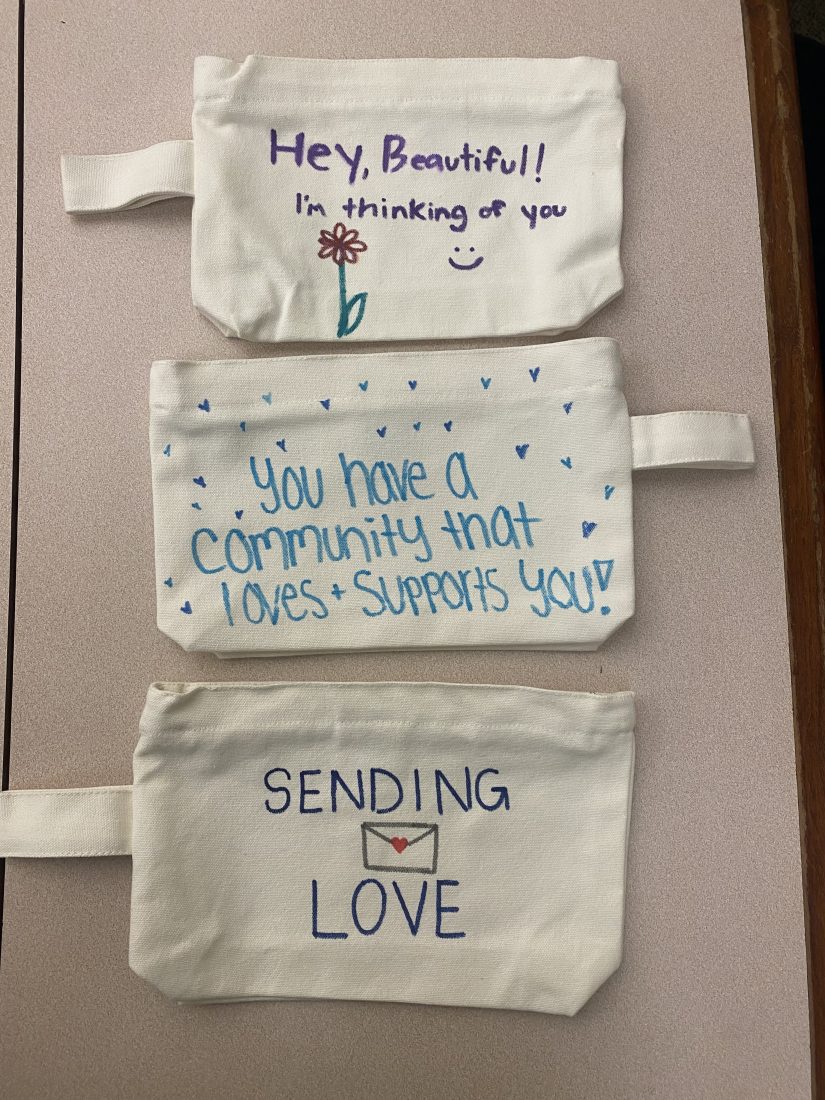 Hey, Beautiful!
I'm thinking of you
You have a
community that
loves + supports you!
SENDING
LOVE